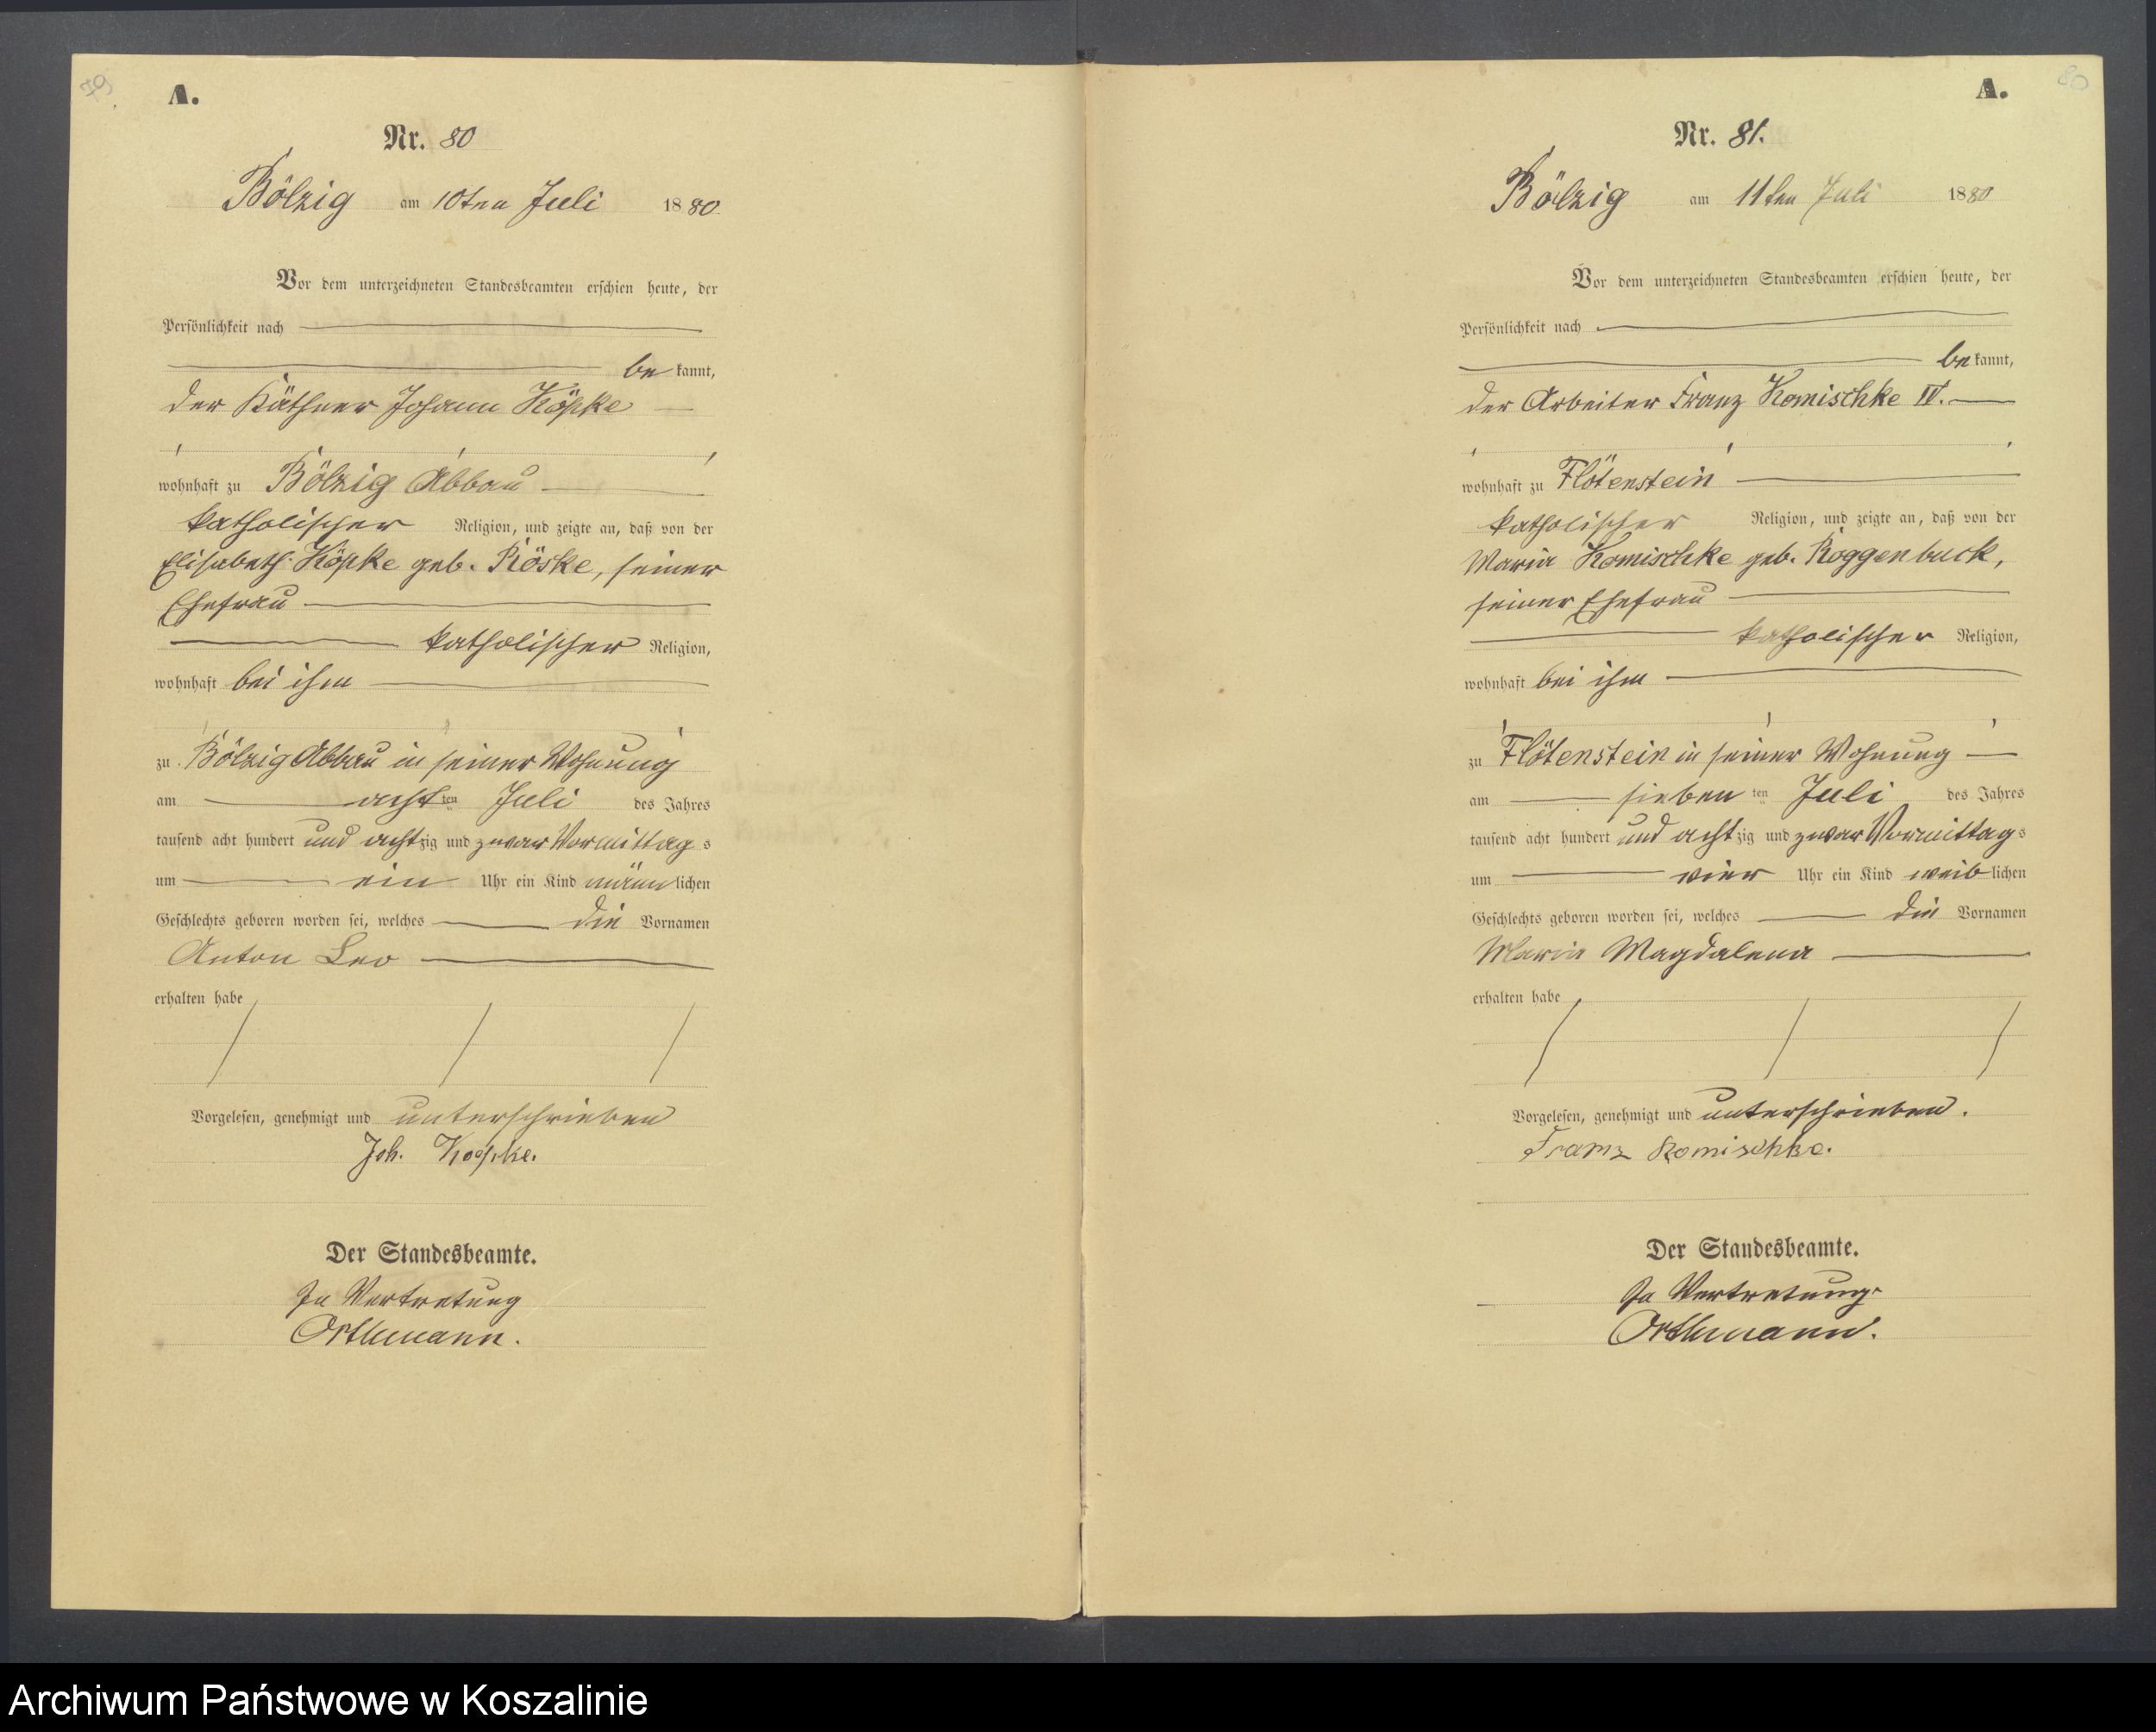 79
A.
Nr. 80
Bölzig am 10ten Juli 1880.
Vor dem unterzeichneten Standesbeamten erschien heute, der
Persönlichkeit nach
be kannt,
der Käthner Johann Köpke
wohnhaft zu Bölzig Abbau
katholischer Religion, und zeigte an, daß von der
Elisabeth Köpke geb. Röske, seiner
Ehefrau
katholischer Religion,
wohnhaft bei ihm
zu Bölzig Abbau in seiner Wohnung
am acht ten Juli des Jahres
tausend acht hundert und achtzig und zwar Vormittag s
um ein Uhr ein Kind männlichen
Geschlechts geboren worden sei, welches die Vornamen
Anton Leo
erhalten habe
Vorgelesen, genehmigt und unterschrieben
Joh. Koepke.
Der Standesbeamte.
In Vertretung
Orthmann.
80
A.
Nr. 81.
Bölzig am 11ten Juli 1880
Vor dem unterzeichneten Standesbeamten erschien heute, der
Persönlichkeit nach
be kannt,
der Arbeiter Franz Komischke IV.
wohnhaft zu Flötenstein
katholischer Religion, und zeigte an, daß von der
Maria Komischke geb. Roggenbuck,
seiner Ehefrau
katholischer Religion,
wohnhaft bei ihm
zu Flötenstein in seiner Wohnung
am sieben ten Juli des Jahres
tausend acht hundert und achtzig und zwar Vormittags
um vier Uhr ein Kind weiblichen
Geschlechts geboren worden sei, welches die Vornamen
Maria Magdalena
erhalten habe
Vorgelesen, genehmigt und unterschrieben.
Franz Komischke.
Der Standesbeamte.
In Vertretung.
Orthmann.
Archiwum Państwowe w Koszalinie